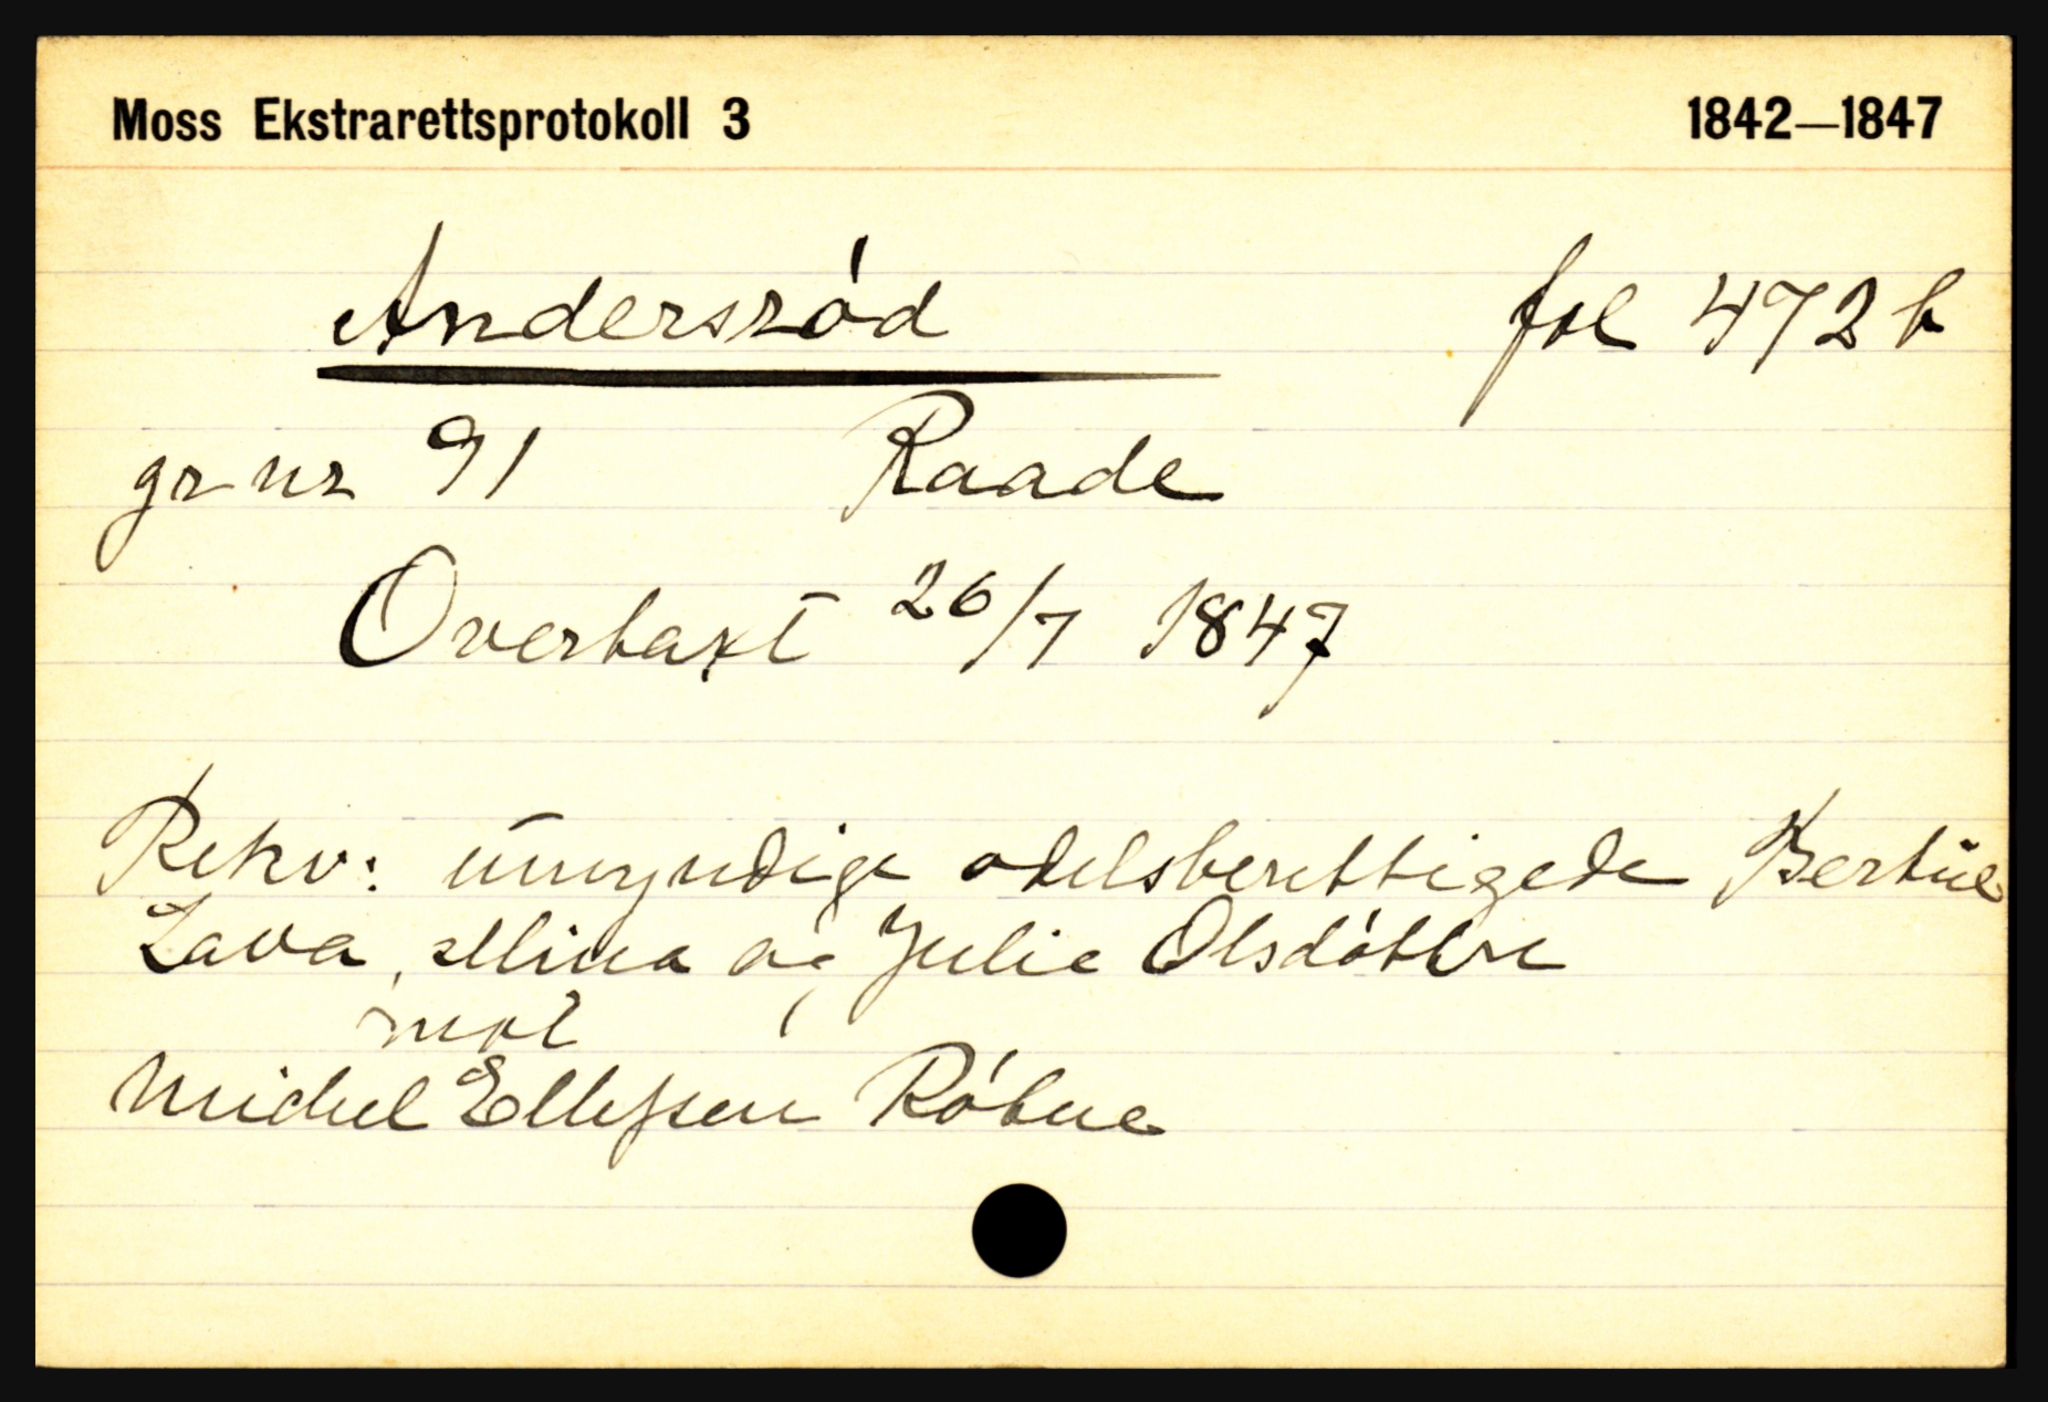 Moss Ekstrarettsprotokoll 3 1842—1847
Andersród fol 472 b
gr nr 91 Raade
Overtaxt 26/7 1847
Rekv: umyndige odelsberettigede
Lava, Mina og Julie Olsdótre
mot
Michel Ellefsen Róbne